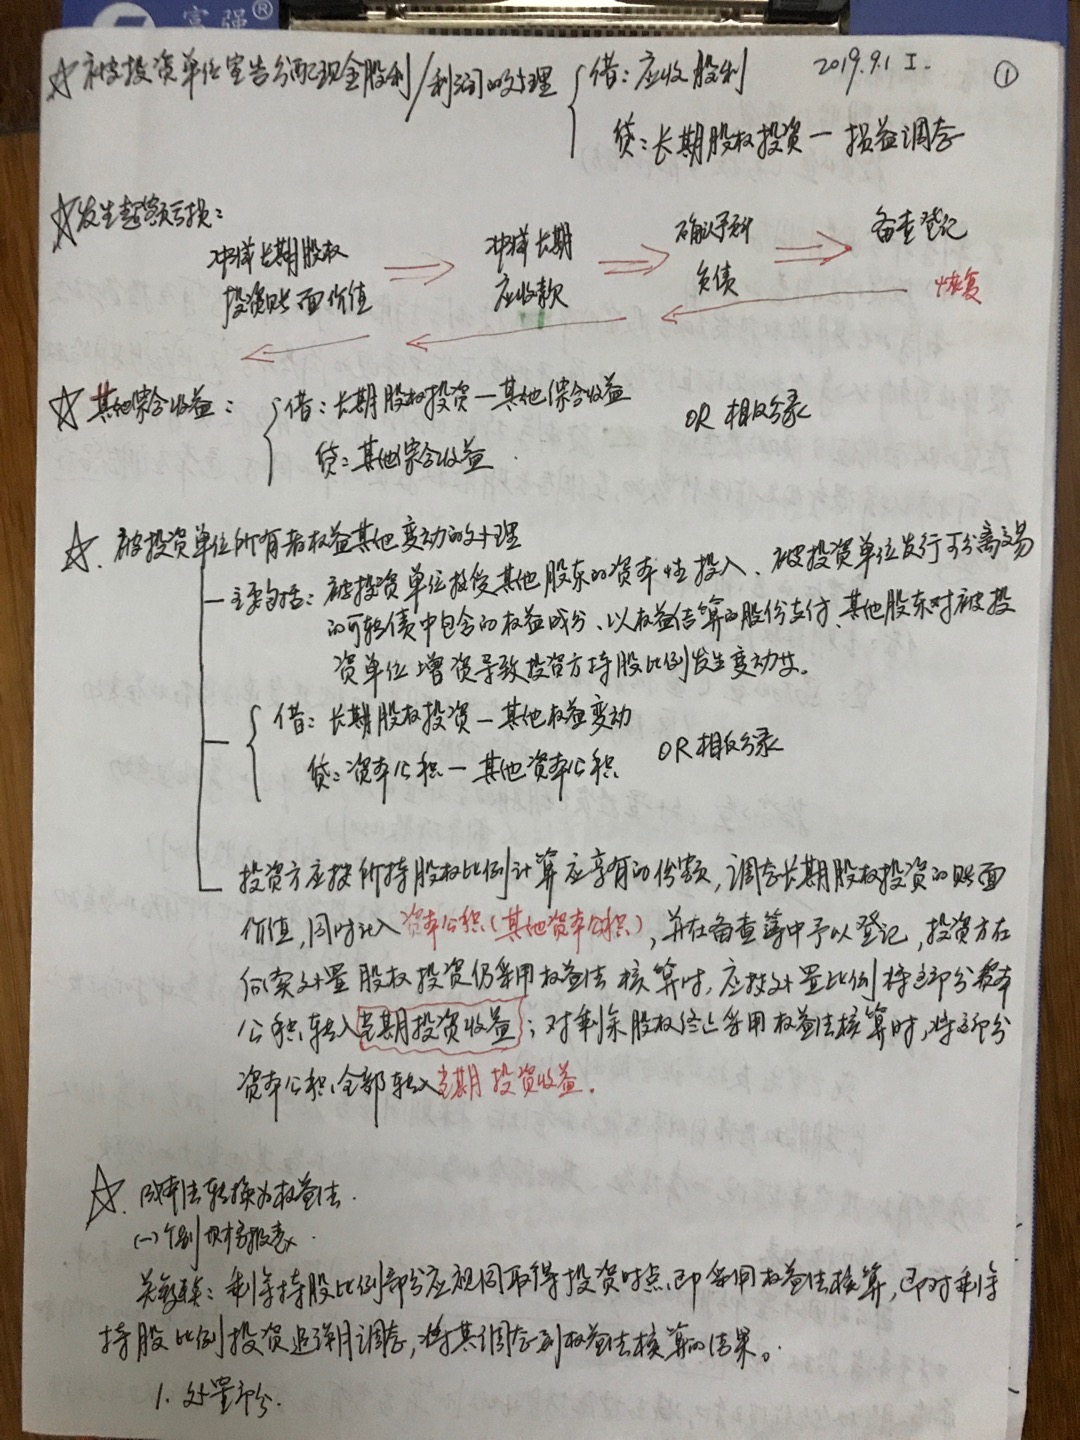 富强®
2019.9.1 I. ①
☆被投资单位宣告分配现金股利/利润的处理 { 借:应收股利
贷:长期股权投资—损益调整
☆发生超额亏损:
冲减长期股权投资账面价值 ⇒ 冲减长期应收款 ⇒ 确认预计负债 ⇒ 备查登记
恢复
☆其他综合收益: { 借:长期股权投资—其他综合收益 OR 相反分录
贷:其他综合收益.
☆. 被投资单位所有者权益其他变动的处理
主要包括:被投资单位接受其他股东的资本性投入、被投资单位发行可分离交易
的可转债中包含的权益成分、以权益结算的股份支付、其他股东对被投
资单位增资导致投资方持股比例发生变动等。
{ 借:长期股权投资—其他权益变动 OR 相反分录
贷:资本公积—其他资本公积
投资方应按所持股权比例计算应享有的份额,调整长期股权投资的账面
价值,同时计入资本公积(其他资本公积),并在备查簿中予以登记,投资方在
后续处置股权投资仍采用权益法核算时,应按处置比例将这部分资本
公积转入当期投资收益;对剩余股权终止采用权益法核算时,将这部分
资本公积全部转入当期投资收益.
☆. 成本法转换为权益法.
(一)个别财务报表.
关键点:剩余持股比例部分应视同取得投资时点即采用权益法核算,即对剩余
持股比例投资追溯调整,将其调整到权益法核算的结果。
1. 处置部分.